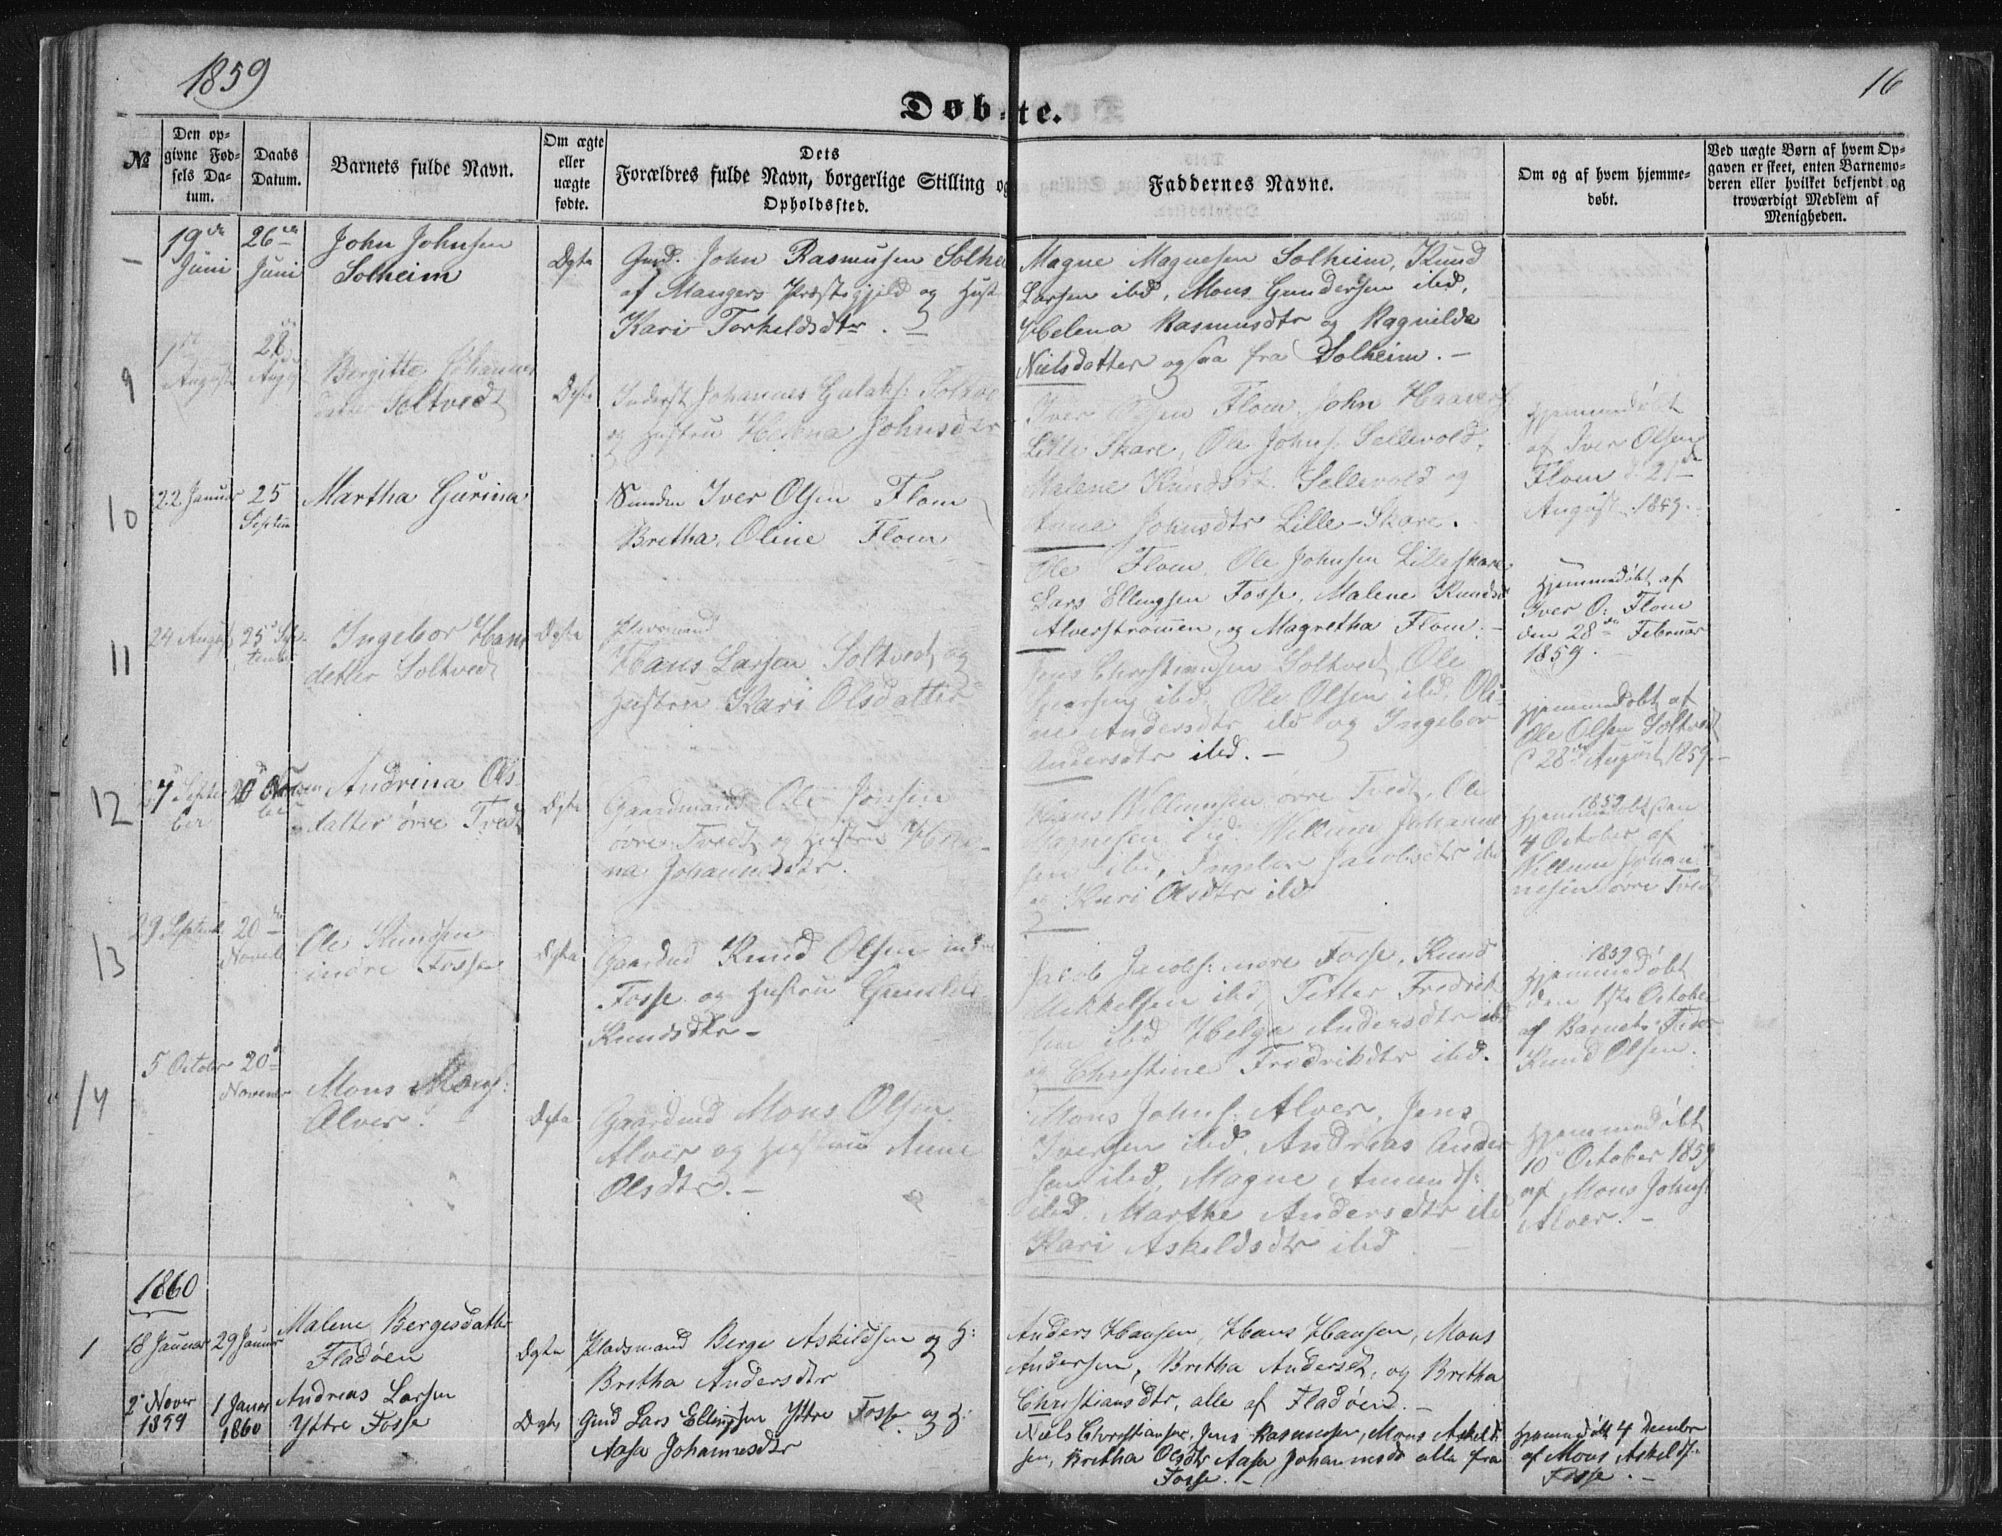 1859
16
Døbte.
№
Den op-
givne Fød-
sels Da-
tum.
Daabs
Datum.
Barnets fulde Navn.
Om ægte
eller
uægte
fødte.
Dets
Forældres fulde Navn, borgerlige Stilling og
Opholdssted.
Faddernes Navne.
Om og af hvem hjemme-
døbt.
Ved uægte Børn af hvem Op-
gaven er skeet, enten Barnemo-
deren eller hvilket bekjendt og
troværdigt Medlem af
Menigheden.
19de
Juni
26de
Juni
John Johnsen
Solheim
Ægte
Gmd. John Rasmusen Solhe
af Mangers Præstegjeld og Hust
Kari Torkeldsdtr.
Magne Magnesen Solheim, Knud
Larsen ibd, Mons Gundersen ibd,
Helena Rasmusdtr og Ragnilda
Nielsdatter ogsaa fra Solheim. -
9
1ste
August
28de
August
Bergitte Johannes
datter Soltvedt
Ægte
Inderst Johannes
og Hustru Helena Johnsdtr
Iver Olsen Flom, John
Lille Skare, Ole Johns. Sellevold,
Malene Knudsdt. Sellevold og
Anne Johnsdtr Lille-Skare.
Hjemmedøbt
af Iver Olsen
Flom d 21de
August 1859.
10
22 Januar
25
Septem
Martha Gurina
Iver Olsen Flom
Bretha Oline Flom
Ole Flom, Ole Johnsen Lilleskare
Lars Ellingsen Fosse, Malene Knudsdt
Alverstrømen, og Magretha Flom. -
Hjemmedøbt af
Iver O. Flom
den 28de Februar
1859.
11
24 August
25 Sep-
tember
Ingebor Hans
datter Soltvedt
Ægte
Pladsmand
Hans Larsen Soltvedt og
Hustru Kari Olsdatter
Jens Christiansen Soltvedt, Ole
ibd, Ole Olsen ibd, Oli-
ne Andersdtr ibd og Ingebor
Andersdtr ibd. -
Hjemmedøbt af
Ole Olsen Soltvedt
d 28de August 1859. -
12
Septem
ber
20
Andrina Ols
datter øvre Tvedt
Ægte
Gaardmand Ole Jonsen
øvre Tvedt og Hustru
Johannesdtr.
Hans Willumsen øvre Tvedt, Ole
Magnesen ibd, Willum Johanne
sen ibd, Ingebor Jacobsdtr ibd
og Kari Olsdtr ibd
1859
Hjemmedøbt den
4 October af
Willum Johan
nesen øvre Tvedt
13
29 Septemb
20de
Novemb
Ole Knudsen
indre Fosse
Ægte
Gaardmd Knud Olsen indre
Fosse og Hustru Gunild
Knudsdtr -
Jacob Jacobs. indre Fosse, Knud
Mikkelsen ibd Petter Fredrik
sen ibd Helge Andersdtr ibd
og Christine Fredriksdtr ibd.
1859
Hjemmedøbt
den 1ste October
af Barnets Fader
Knud Olsen.
14
5 October
20de
November
Mons Mons:
Alver.
Ægte
Gaardmd Mons Olsen
Alver og Hustru Anne
Olsdtr. -
Mons Johns. Alver, Jens
Iversen ibd, Andreas Ander
sen ibd, Magne Amunds:
ibd. Marthe Andersdtr ibd
Kari Askeldsdtr ibd
Hjemmedøbt
10 October 1859
af Mons Johns:
Alver. -
1860
1
18 Januar
29 Januar
Malene Bergesdatter
Fladøen
Ægte
Pladsmand Berge Askildsen og H:
Bretha Andersdtr
Anders Hansen, Hans Hansen, Mons
Andersen, Bretha Andersdt, og Bretha
Christiansdtr, alle af Fladøen. -
2 Novbr
1859
1 Januar
1860
Andreas Larsen
Yttre Fosse
Ægte
Gmd Lars Ellingsen Yttre Fosse og H:
Aasa Johannesdtr
Niels Christiansen, Jens Rasmusen, Mons Askeld
sen, Bretha Olsdtr Aasa Johannesdt alle fra
Fosse. -
Hjemmedøbt 4 December
af Mons Askelds:
Fosse. -